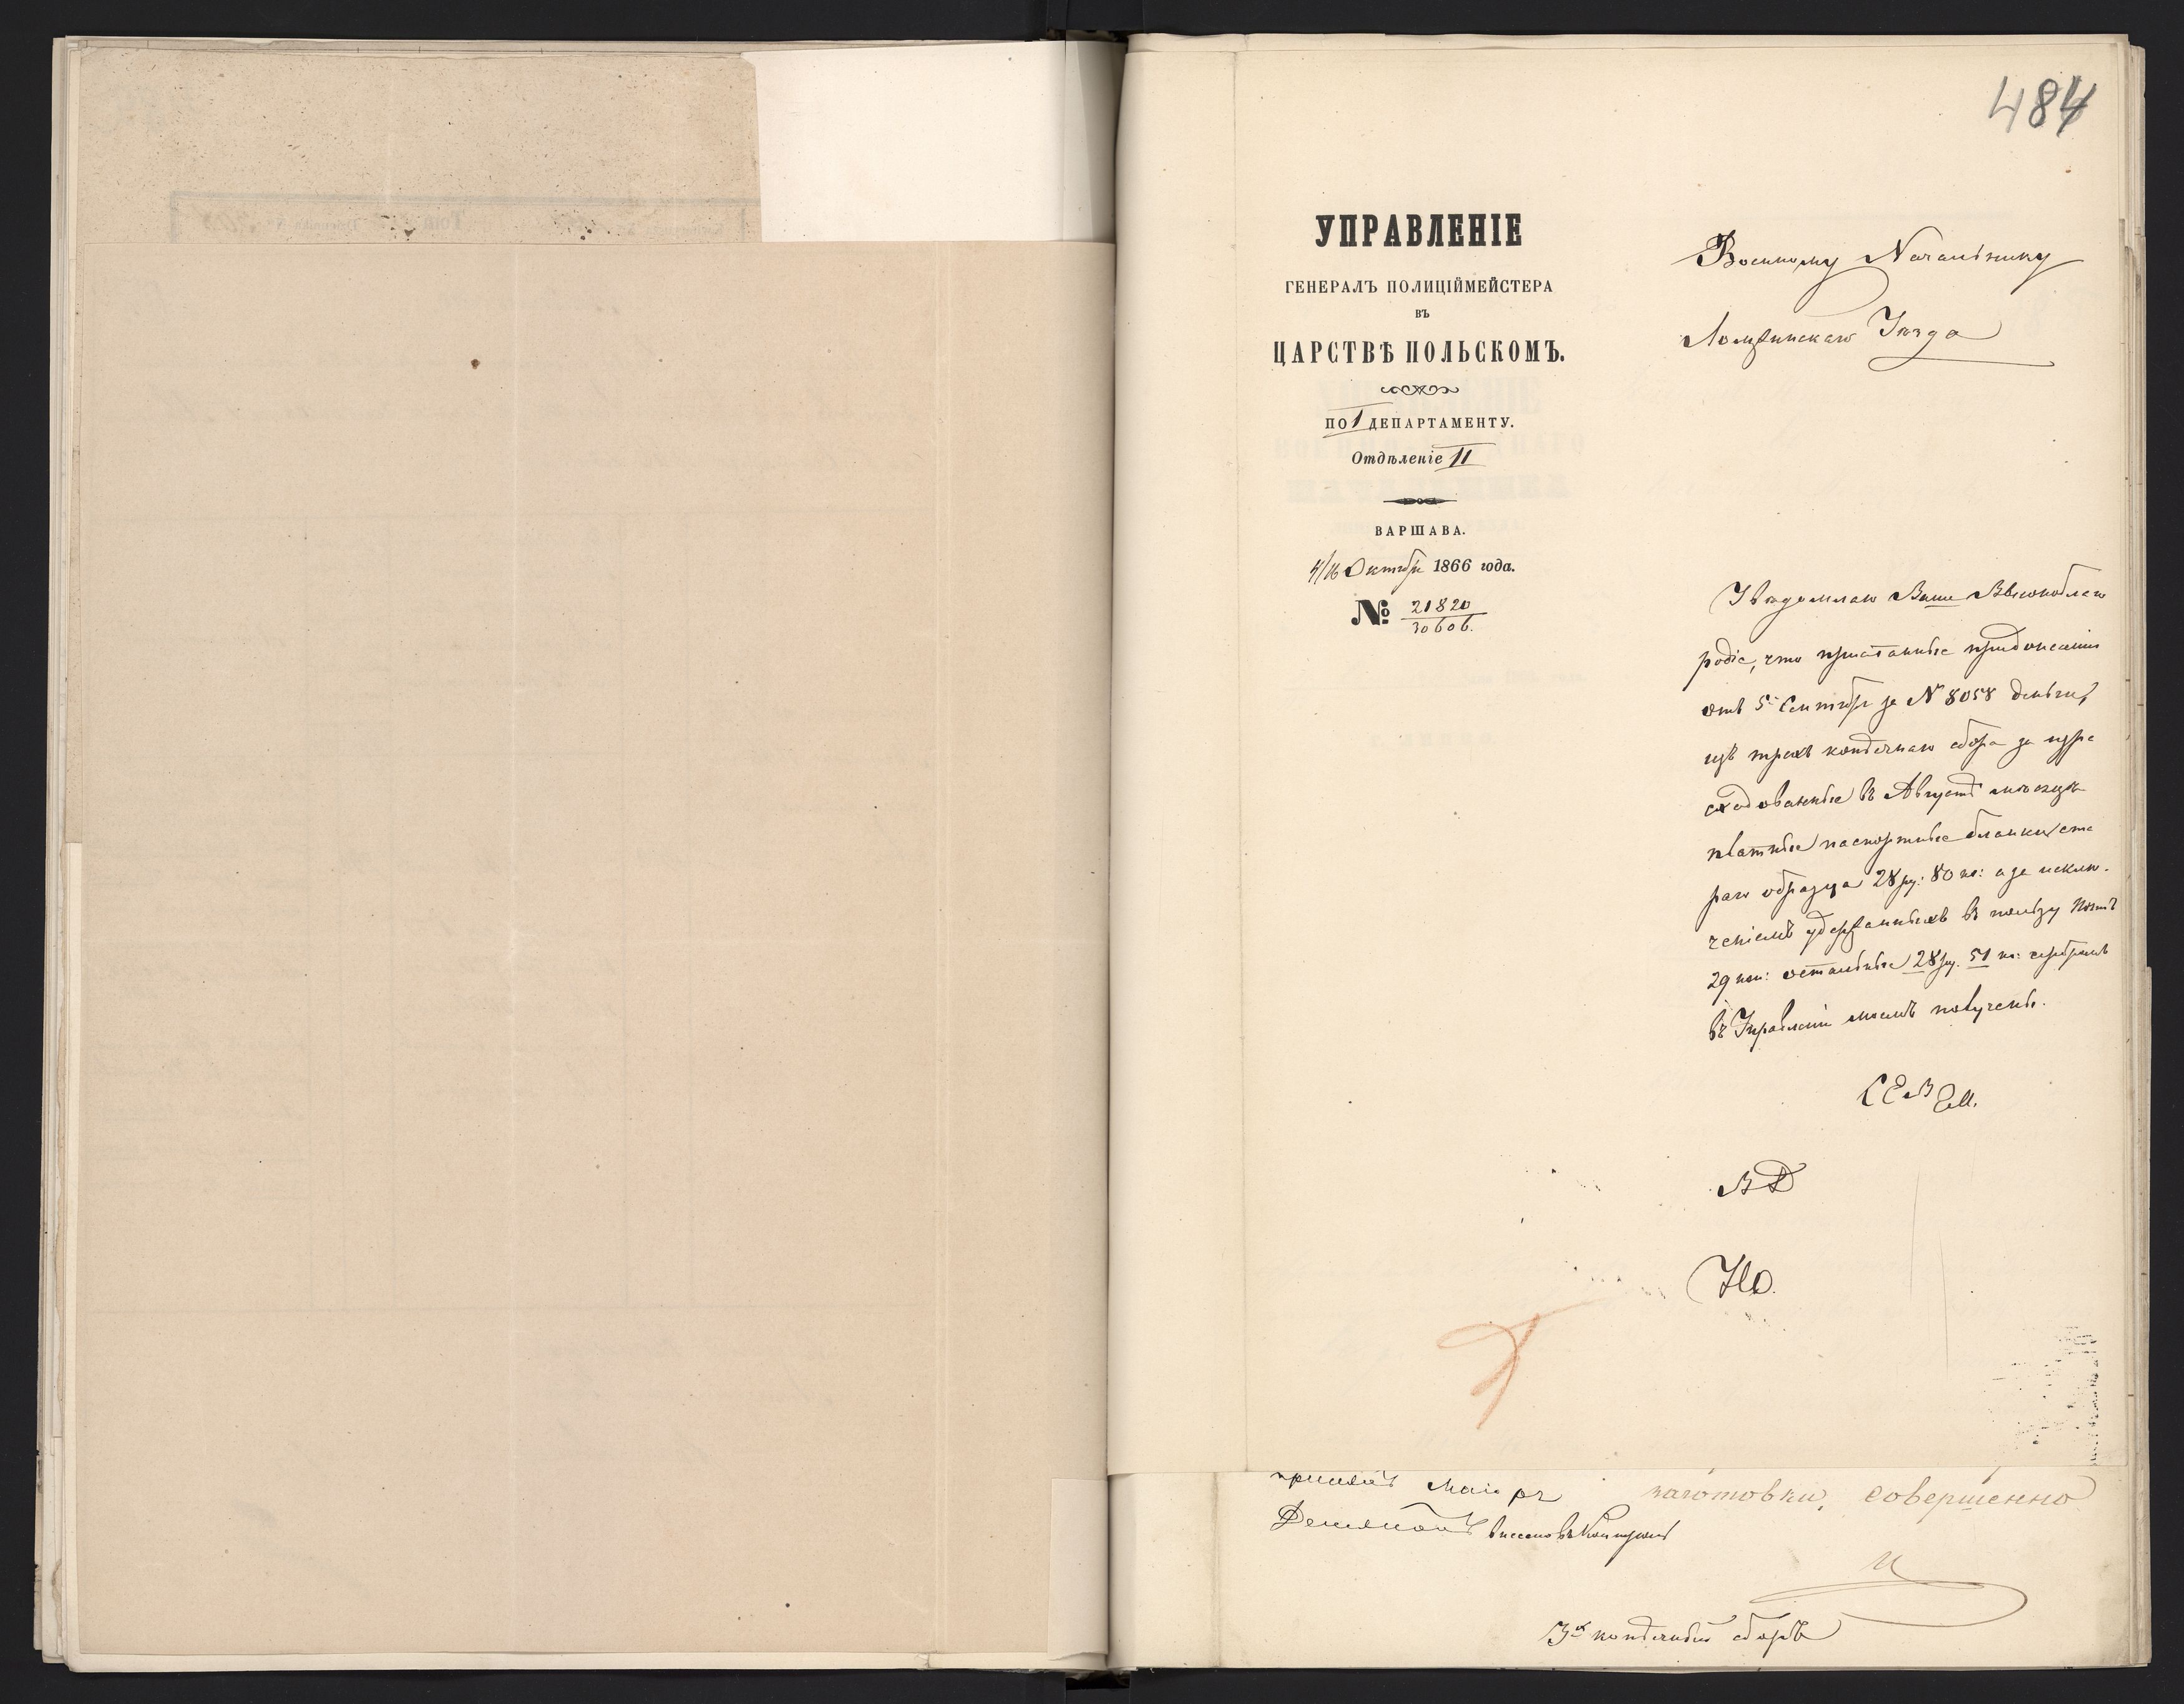 484
УПРАВЛЕНІЕ
ГЕНЕРАЛЪ ПОЛИЦІЙМЕЙСТЕРА
ВЪ
ЦАРСТВѢ ПОЛЬСКОМЪ.
ПО I ДЕПАРТАМЕНТУ.
Отдѣленіе II
ВАРШАВА.
4/16 Октября 1866 года.
№ 21820
30606.
Военному Начальнику
Ломжинскаго Уѣзда
Увѣдомляю Ваше Высокобlаго
родіе, что присланные при донесеніи
отъ 5 Сентября за N 8058 деньги,
изъ трехъ копѣечнаго сбора за изра
сходованные въ Августѣ мѣсяцѣ
платные паспортные бланки ста
раго образца 28 ру: 80 ко: а за исклю-
ченіемъ удержанныхъ въ пользу Почтъ
29 коп: остальные 28 ру. 51 ко: серебромъ
въ Управленіи моемъ получены.
ВД
НО.
маіоръ
заготовки, совершенно
3х копѣечный сборъ